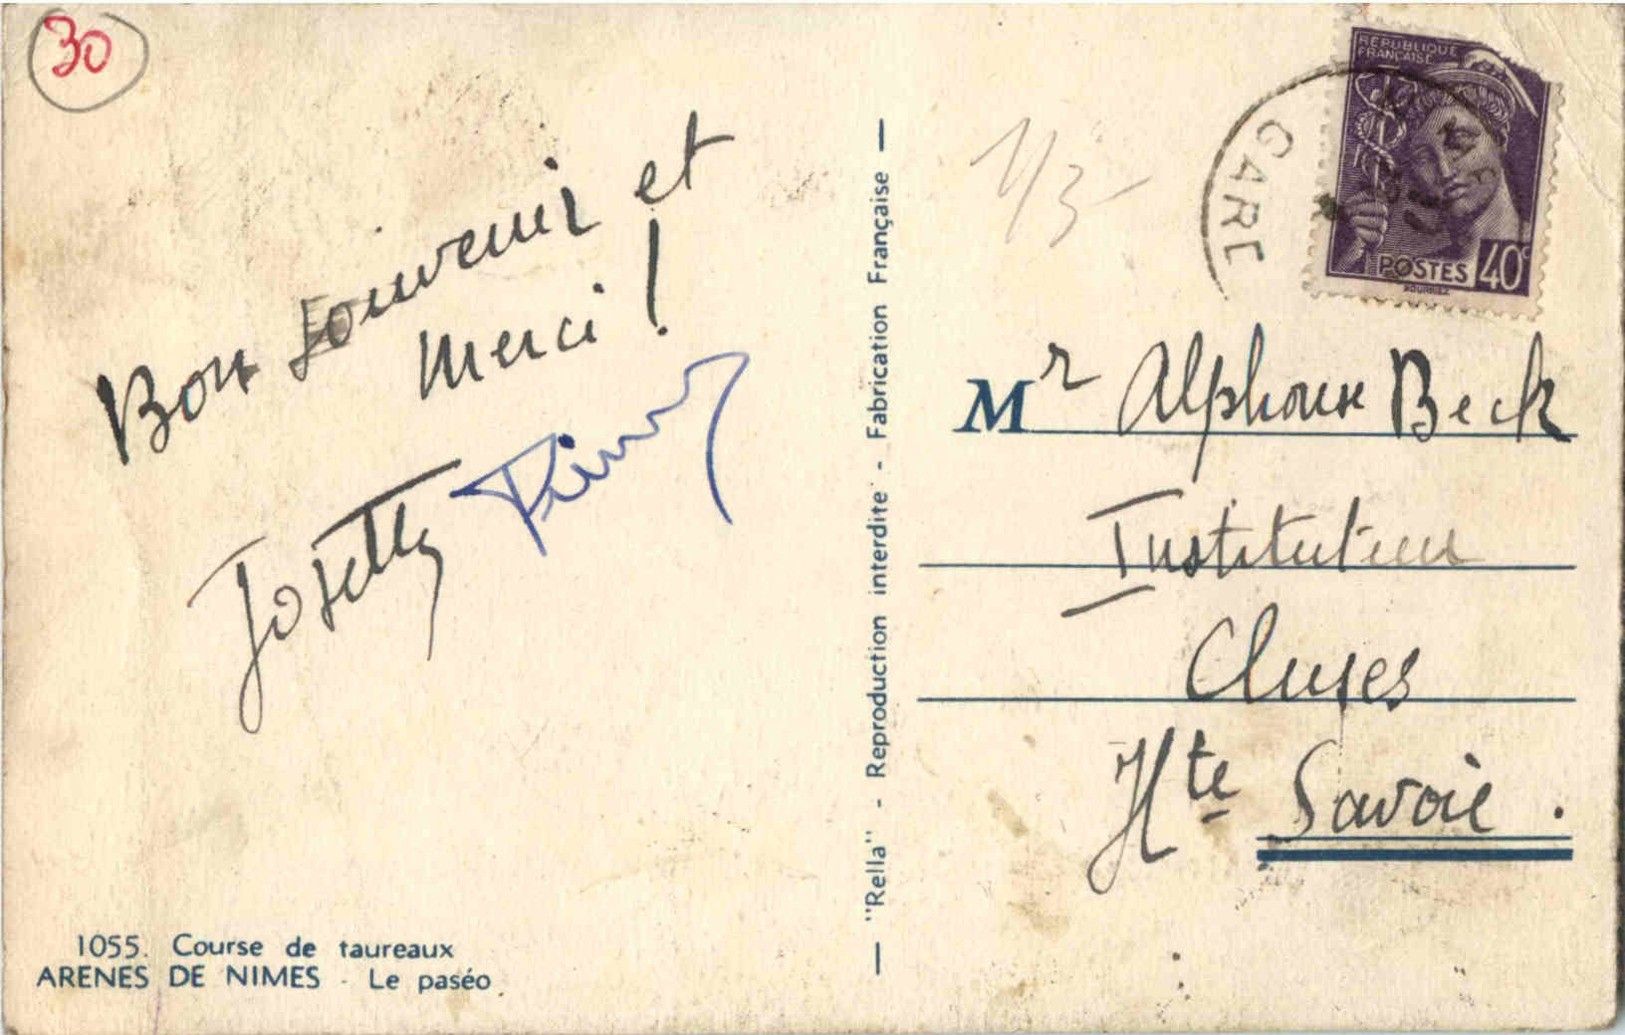 30
Bon souvenir et
merci !
Josette
1055. Course de taureaux
ARENES DE NIMES - Le paséo
— "Rella" - Reproduction interdite - Fabrication Française —
1/3
GARE
REPUBLIQUE
FRANÇAISE
POSTES 40c
Mr Alphonse Beck
Instituteur
Cluses
Hte Savoie .